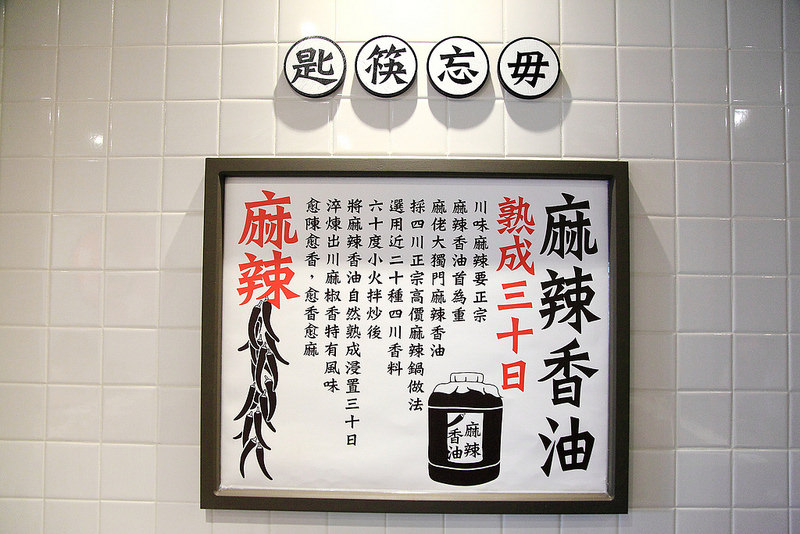 毋忘筷匙
麻辣香油
熟成三十日
川味麻辣要正宗
麻辣香油首為重
麻佬大獨門麻辣香油
採四川正宗高價麻辣鍋做法
選用近二十種四川香料
六十度小火拌炒後
將麻辣香油自然熟成浸置三十日
淬煉出川麻椒香特有風味
愈陳愈香，愈香愈麻
麻辣
麻辣
香油